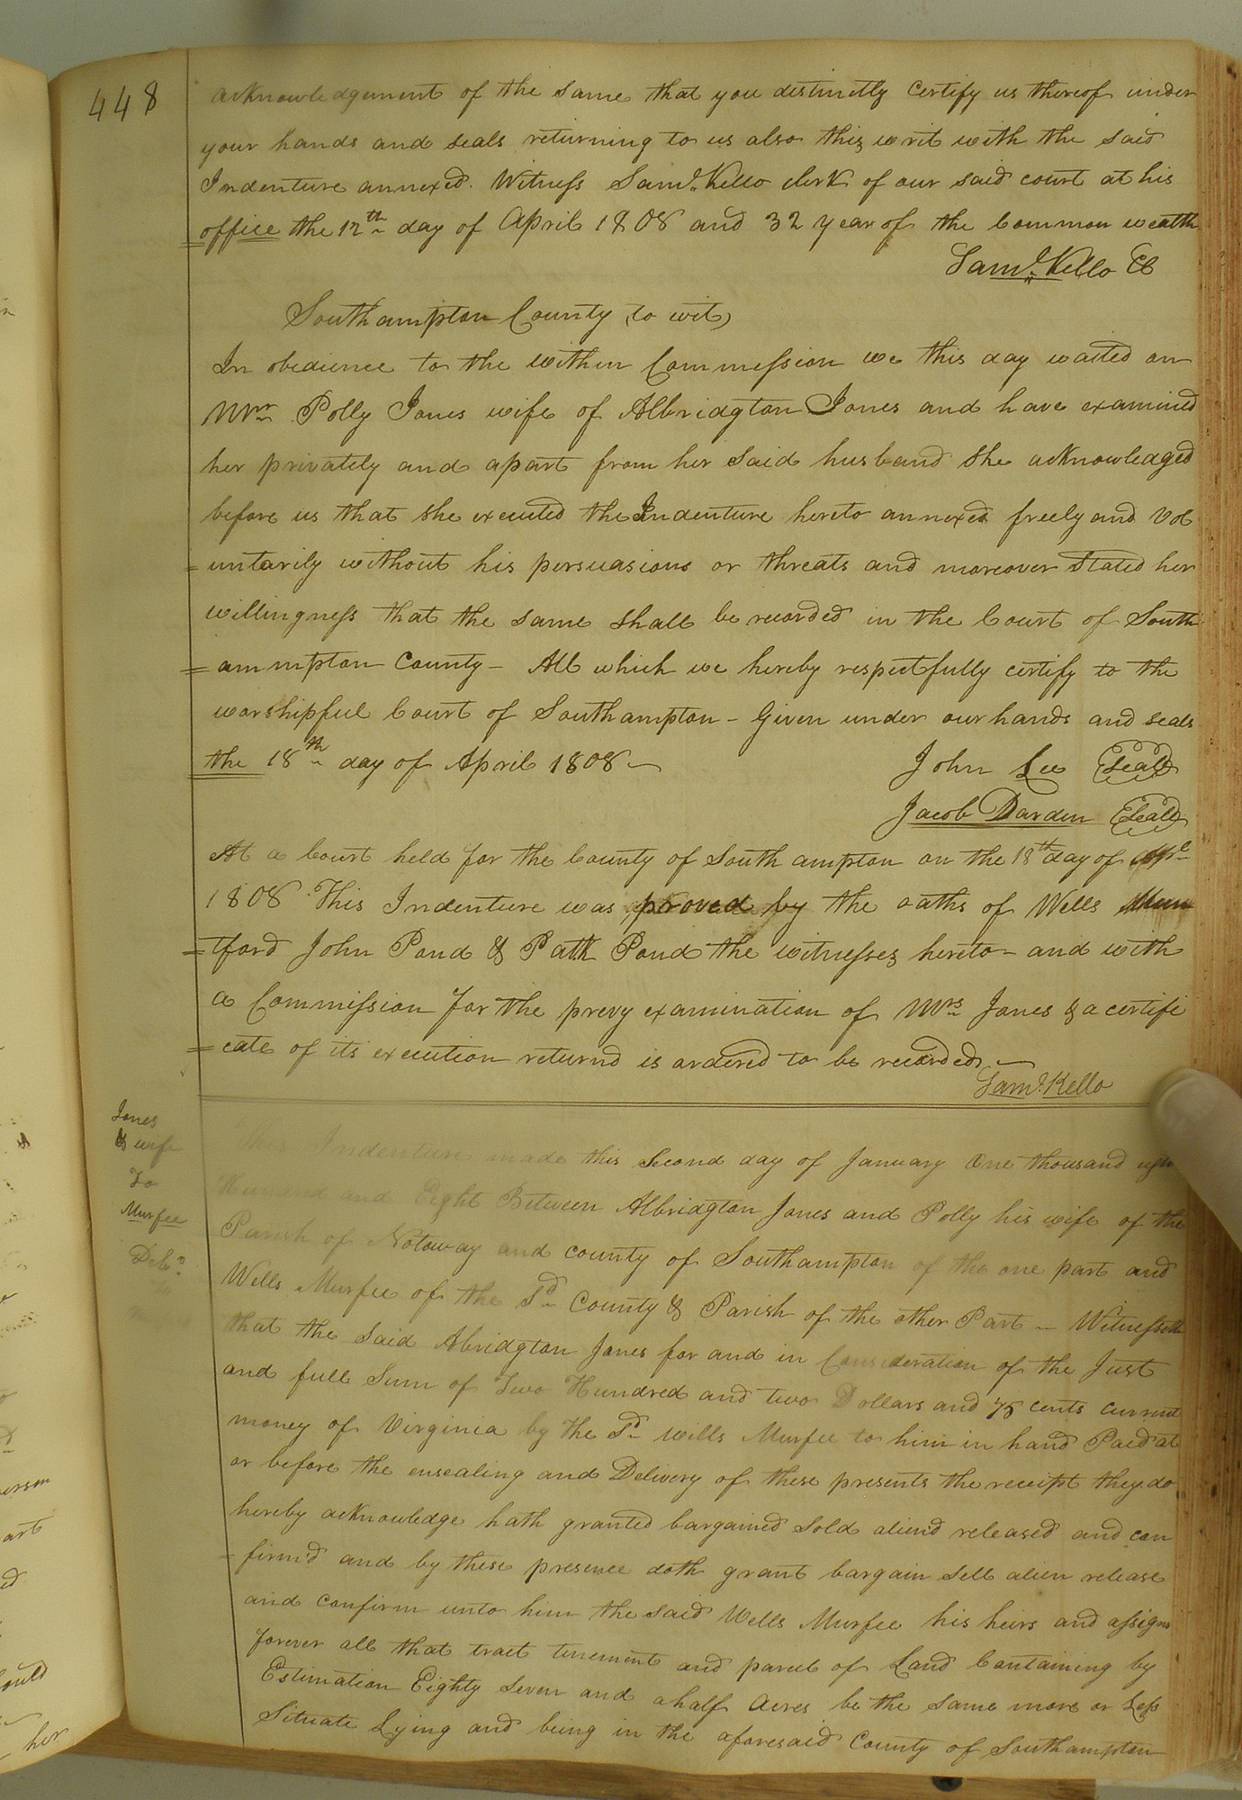 448
acknowledgement of the same that you distinctly certify us thereof under
your hands and seals returning to us also this writ with the said
Indenture annexed. Witness Saml. Kello clerk of our said court at his
office the 12th day of April 1808 and 32 year of the Common wealth
Saml. Kello CC
Southampton County (to wit)
In obedience to the within Commession we this day waited on
Mrs Polly Jones wife of Albridgton Jones and have examined
her privately and apart from her said husband she acknowledged
before us that she executed the Indenture hereto annexed freely and Vol
=untarily without his persuasions or threats and moreover stated her
willingness that the same shall be recorded in the Court of South
=ammpton County - All which we hereby respectfully certify to the
worshipful Court of Southampton - Given under our hands and seals
the 18th day of April 1808
John Lee (Seal)
Jacob Darden (Seal)
At a Court held for the County of Southampton on the 18th day of Apl
1808 This Indenture was proved by the oaths of Wells Mun
=tford John Pond & Patk Pond the witnesses hereto - and with
a Commission for the prevy examination of Mrs Jones & a certifi
=cate of its execution returnd is ordered to be recorded
Saml. Kello
Jones
& wife
To
Murfee
This Indenture made this Second day of January One thousand
Hundred and Eight Between Albridgton Jones and Polly his wife of the
Parish of Notoway and county of Southampton of the one part and
Wells Murfee of the Sd County & Parish of the other Part - Witnesseth
that the Said Abridgton Jones for and in Consideration of the Just
and full Sum of Two Hundred and two Dollars and 75 cents current
money of Virginia by the Sd Wills Murfee to him in hand Paid at
or before the ensealing and Delivery of these presents the receipt they do
hereby acknowledge hath granted bargained Sold aliend released and con
=firm'd and by these presence doth grant bargain Sell alien release
and confirm unto him the said Wells Murfee his heirs and assigns
forever all that tract tenement and parcel of Land Containing by
Estimation Eighty Seven and a half Acres be the same more or Less
Situate Lying and being in the aforesaid County of Southampton